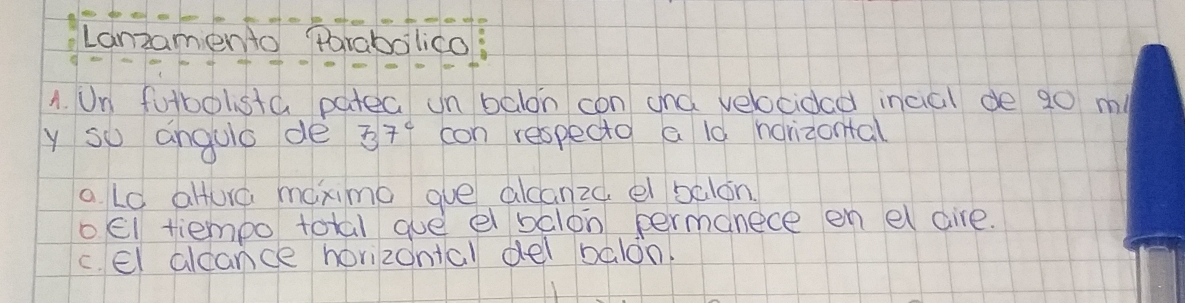 Lanzamiento Parabólico
1. Un futbolista patea un balón con una velocidad incial de 20 m/
y su ángulo de 37° con respecto a la horizontal
a. La altura máxima que alcanza el balón.
b. El tiempo total que el balón permanece en el aire.
c. El alcance horizontal del balón.